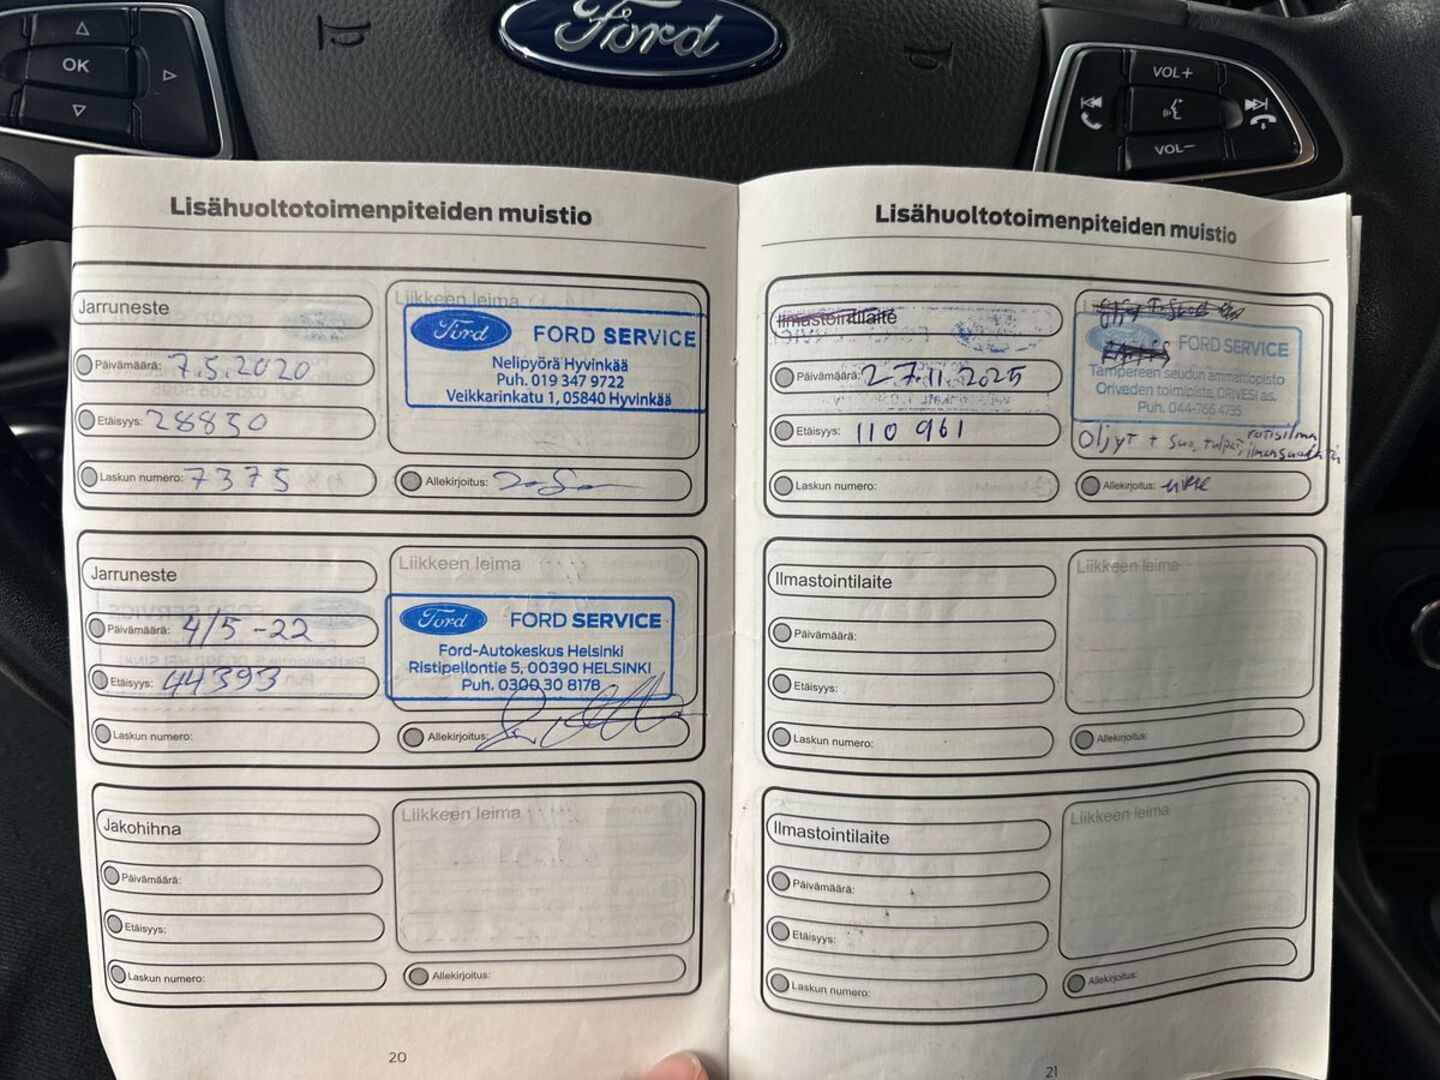 OK
Ford
VOL+
VOL-
Lisähuoltotoimenpiteiden muistio
Jarruneste
Liikkeen leima
Ford FORD SERVICE
Nelipyörä Hyvinkää
Puh. 019 347 9722
Veikkarinkatu 1, 05840 Hyvinkää
Päivämäärä: 7.5.2020
Etäisyys: 28850
Laskun numero: 7375
Allekirjoitus:
Jarruneste
Liikkeen leima
Ford FORD SERVICE
Ford-Autokeskus Helsinki
Ristipellontie 5, 00390 HELSINKI
Puh. 0300 30 8178
Päivämäärä: 4/5 -22
Etäisyys: 44393
Laskun numero:
Allekirjoitus:
Jakohihna
Liikkeen leima
Päivämäärä:
Etäisyys:
Laskun numero:
Allekirjoitus:
20
Lisähuoltotoimenpiteiden muistio
Ilmastointilaite
FORD SERVICE
Tampereen seudun ammattiopisto
Oriveden toimipiste, ORIVESI as.
Puh. 044-766 4735
Päivämäärä: 27.11.2025
Etäisyys: 110 961
Öljyt + suo, tulpat,
ilmansuodatin
Laskun numero:
Allekirjoitus:
Ilmastointilaite
Liikkeen leima
Päivämäärä:
Etäisyys:
Laskun numero:
Allekirjoitus:
Ilmastointilaite
Liikkeen leima
Päivämäärä:
Etäisyys:
Laskun numero:
Allekirjoitus:
21